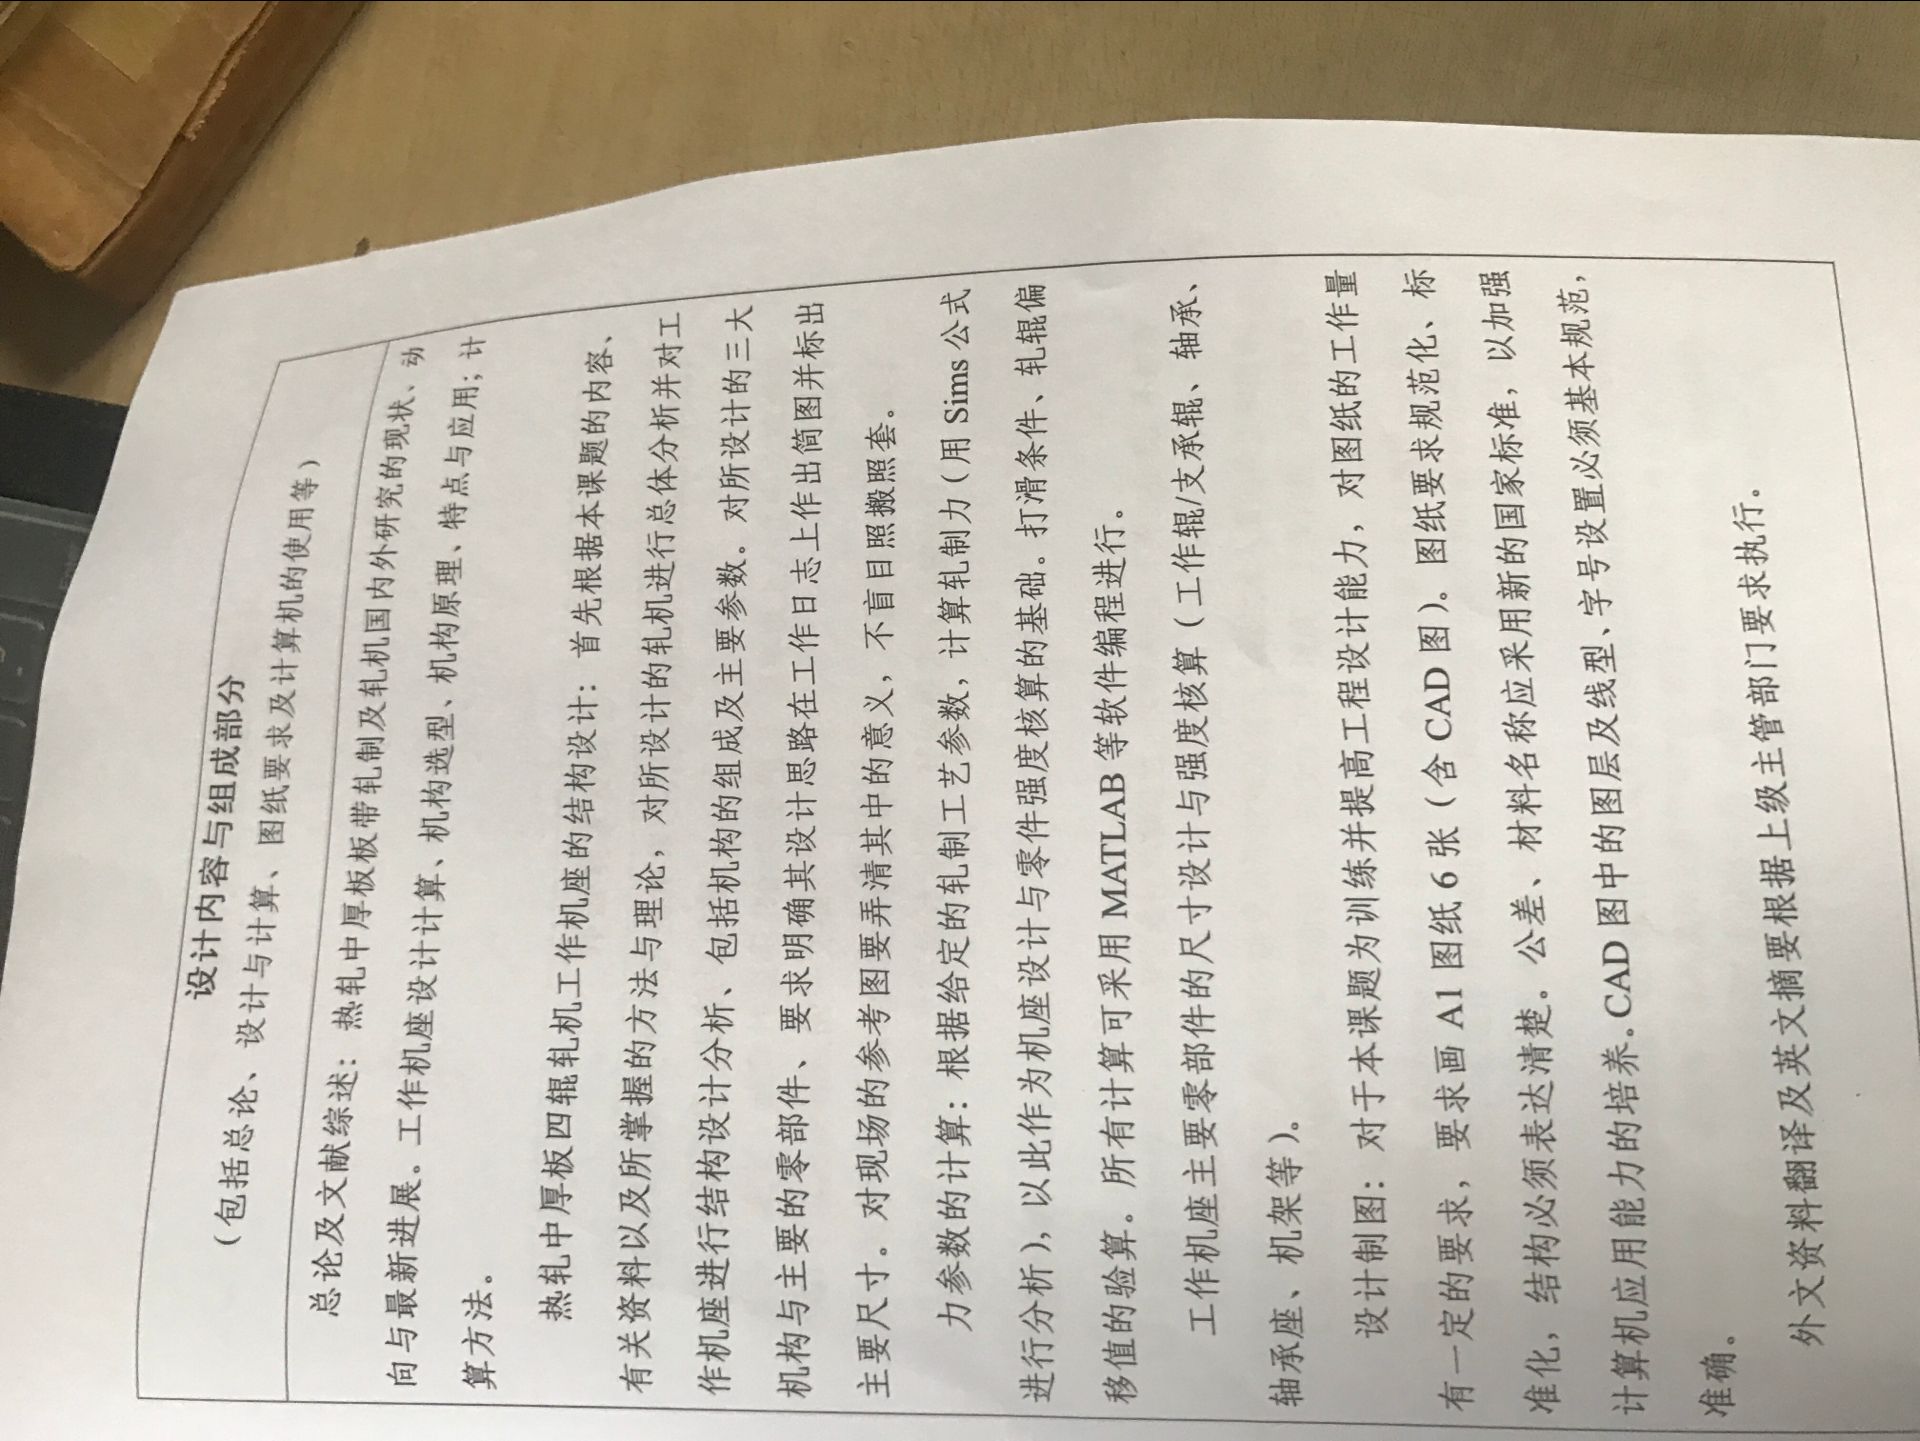 设计内容与组成部分
（包括总论、设计与计算、图纸要求及计算机的使用等）
总论及文献综述：热轧中厚板板带轧制及轧机国内外研究的现状、动
向与最新进展。工作机座设计计算、机构选型、机构原理、特点与应用；计
算方法。
热轧中厚板四辊轧机工作机座的结构设计：首先根据本课题的内容、
有关资料以及所掌握的方法与理论，对所设计的轧机进行总体分析并对工
作机座进行结构设计分析、包括机构的组成及主要参数。对所设计的三大
机构与主要的零部件、要求明确其设计思路在工作日志上作出简图并标出
主要尺寸。对现场的参考图要弄清其中的意义，不盲目照搬照套。
力参数的计算：根据给定的轧制工艺参数，计算轧制力（用 Sims 公式
进行分析），以此作为机座设计与零件强度核算的基础。打滑条件、轧辊偏
移值的验算。所有计算可采用 MATLAB 等软件编程进行。
工作机座主要零部件的尺寸设计与强度核算（工作辊/支承辊、轴承、
轴承座、机架等）。
设计制图：对于本课题为训练并提高工程设计能力，对图纸的工作量
有一定的要求，要求画 A1 图纸 6 张（含 CAD 图）。图纸要求规范化、标
准化，结构必须表达清楚。公差、材料名称应采用新的国家标准，以加强
计算机应用能力的培养。CAD 图中的图层及线型、字号设置必须基本规范，
准确。
外文资料翻译及英文摘要根据上级主管部门要求执行。